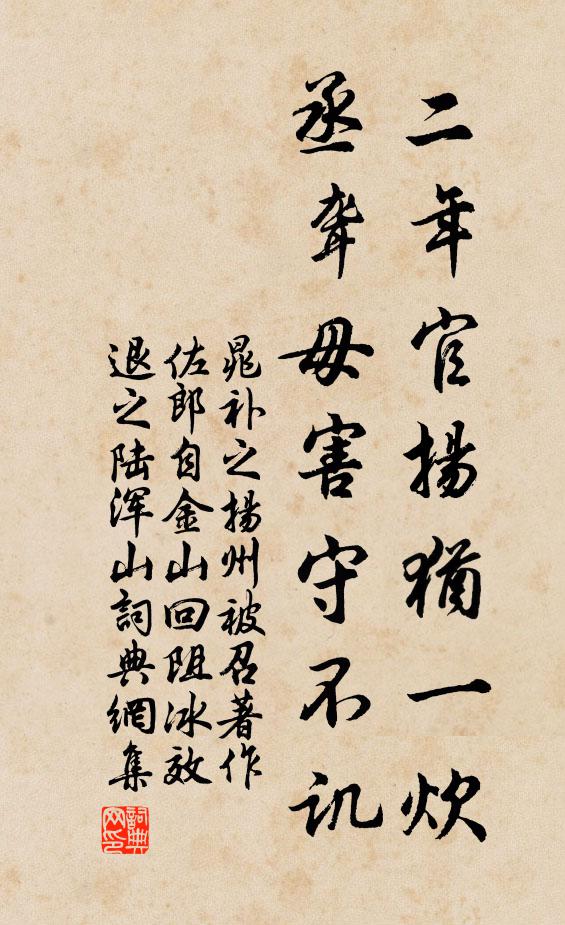 二年官揚猶一炊
丞聾毋害守不訉
晁补之揚州被召著作
佐郎自金山回阻冰效
退之陆浑山詞典網集
詞典网印